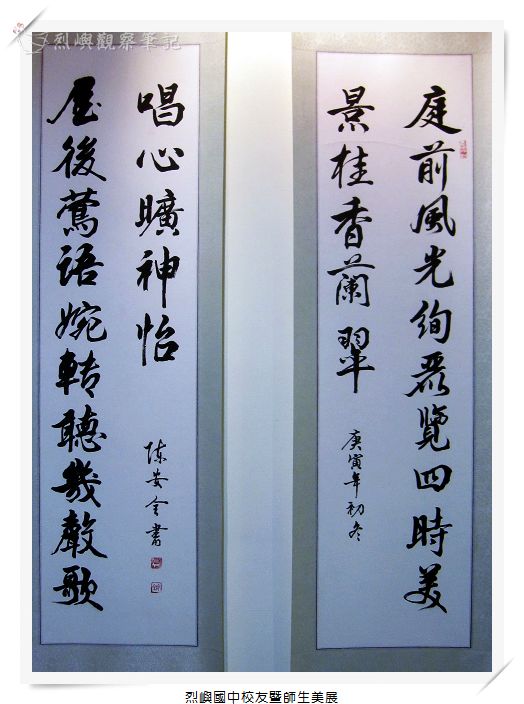 烈嶼觀察筆記
庭前風光絢麗覽四時美
景桂香蘭翠
庚寅年初冬
屋後鶯語婉轉聽幾聲歌
唱心曠神怡
陳安全書
烈嶼國中校友暨師生美展